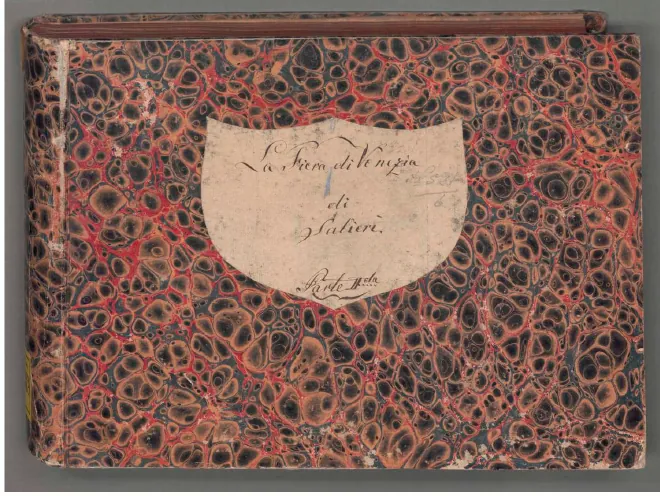 La Fiera di Venezia
di
Salieri.
Parte IIda